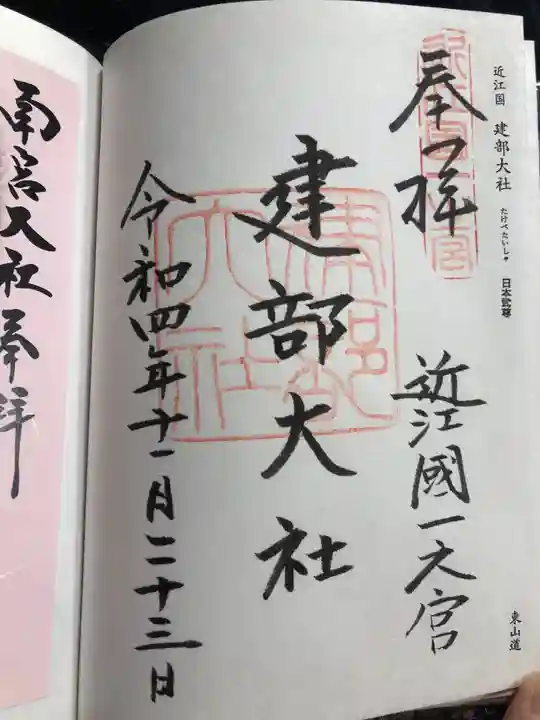 近江国 建部大社 たけべたいしゃ 日本武尊
東山道
奉拝
近江國一之宮
建部大社
建部大社
令和四年十一月二十三日
南宮大社奉拝